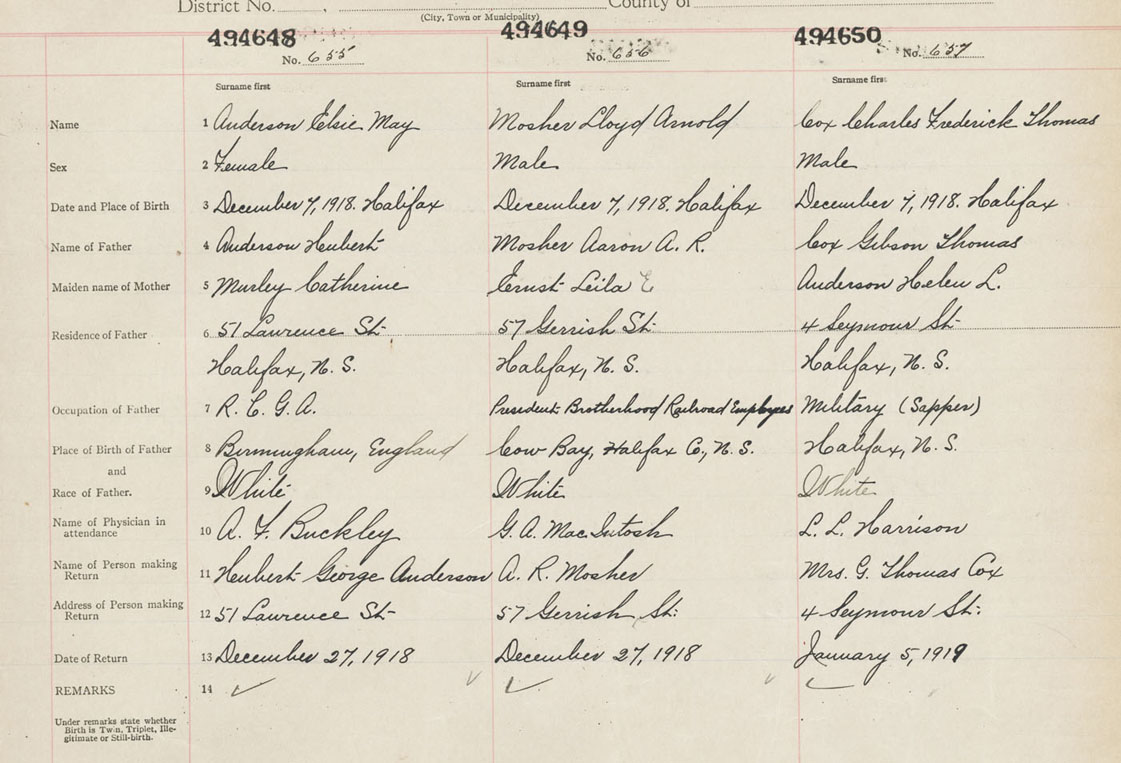 District No. , County of
(City, Town or Municipality)
494648 494649 494650
No. 655 No. 656 No. 657
Surname first Surname first Surname first
Name 1 Anderson Elsie May Mosher Lloyd Arnold Cox Charles Frederick Thomas
Sex 2 Female Male Male
Date and Place of Birth 3 December 7, 1918. Halifax December 7, 1918. Halifax December 7, 1918. Halifax
Name of Father 4 Anderson Hubert Mosher Aaron A. R. Cox Gibson Thomas
Maiden name of Mother 5 Murley Catherine Ernst Leila E Anderson Helen L.
Residence of Father 6 51 Lawrence St 57 Gerrish St. 4 Seymour St
Halifax, N. S. Halifax, N. S. Halifax, N. S.
Occupation of Father 7 R. C. G. A. President Brotherhood Railroad Employees Military (Sapper)
Place of Birth of Father 8 Birmingham, England Cow Bay, Halifax Co., N. S. Halifax, N. S.
and
Race of Father. 9 White White White
Name of Physician in attendance 10 A. F. Buckley G. A. MacIntosh L. L. Harrison
Name of Person making Return 11 Hubert George Anderson A. R. Mosher Mrs. G. Thomas Cox
Address of Person making Return 12 51 Lawrence St 57 Gerrish St. 4 Seymour St.
Date of Return 13 December 27, 1918 December 27, 1918 January 5, 1919
REMARKS 14
Under remarks state whether
Birth is Twin, Triplet, Ille-
gitimate or Still-birth.